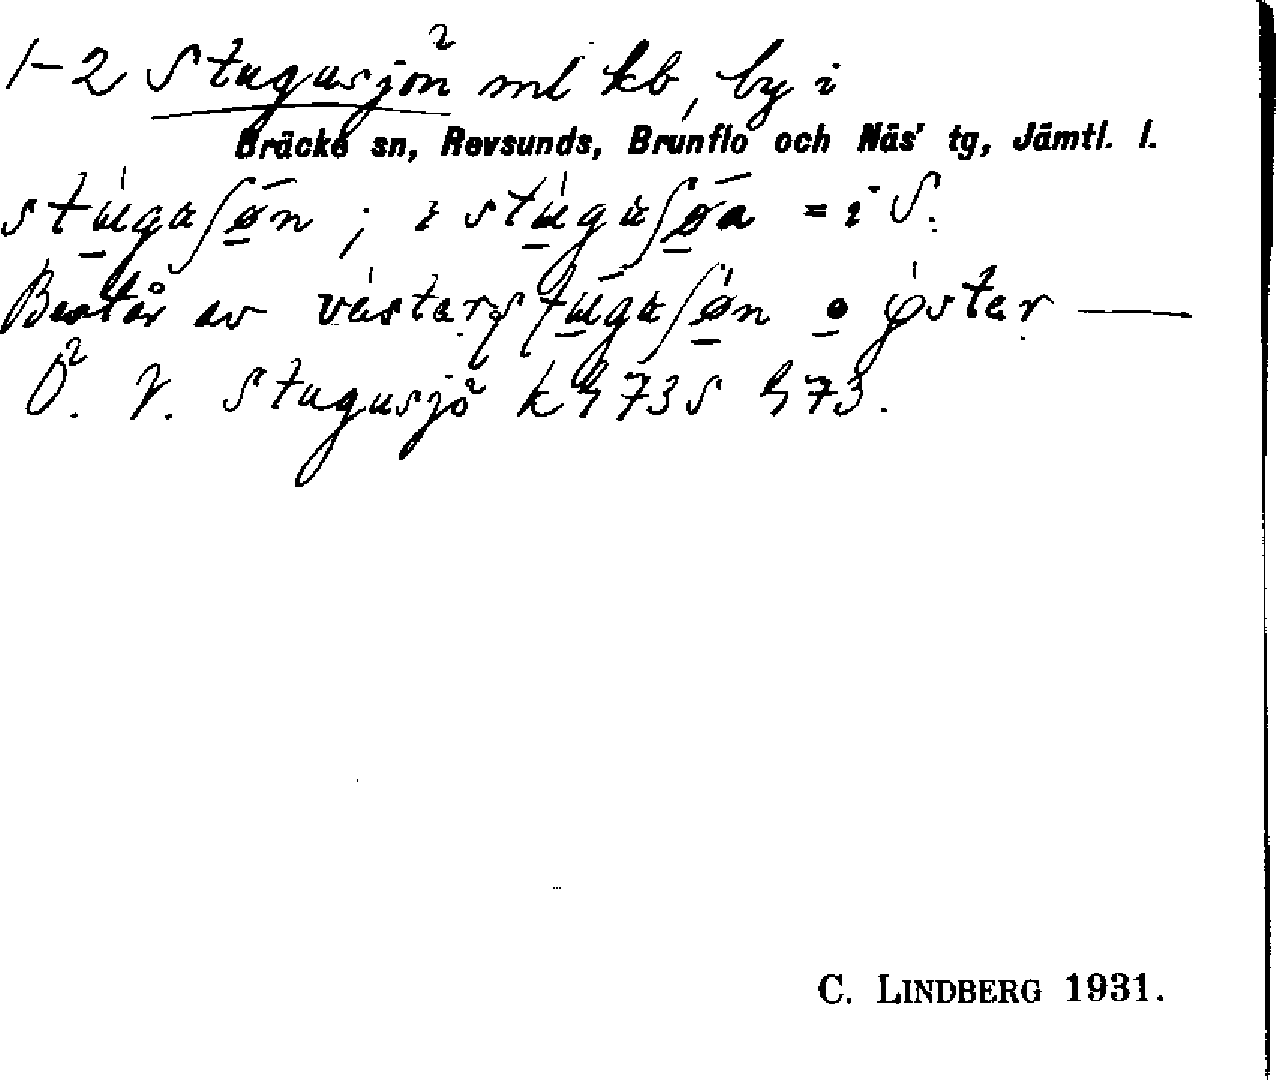 1-2 Stugusjön ml kb, by i
Bräcke sn, Revsunds, Brunflo och Näs' tg, Jämtl. l.
stúguʃøn ; i stúguʃøa = i S.
Består av västerstúguʃøn o øster —
Ö. V. Stugusjö k 473 s 473.
C. LINDBERG 1931.